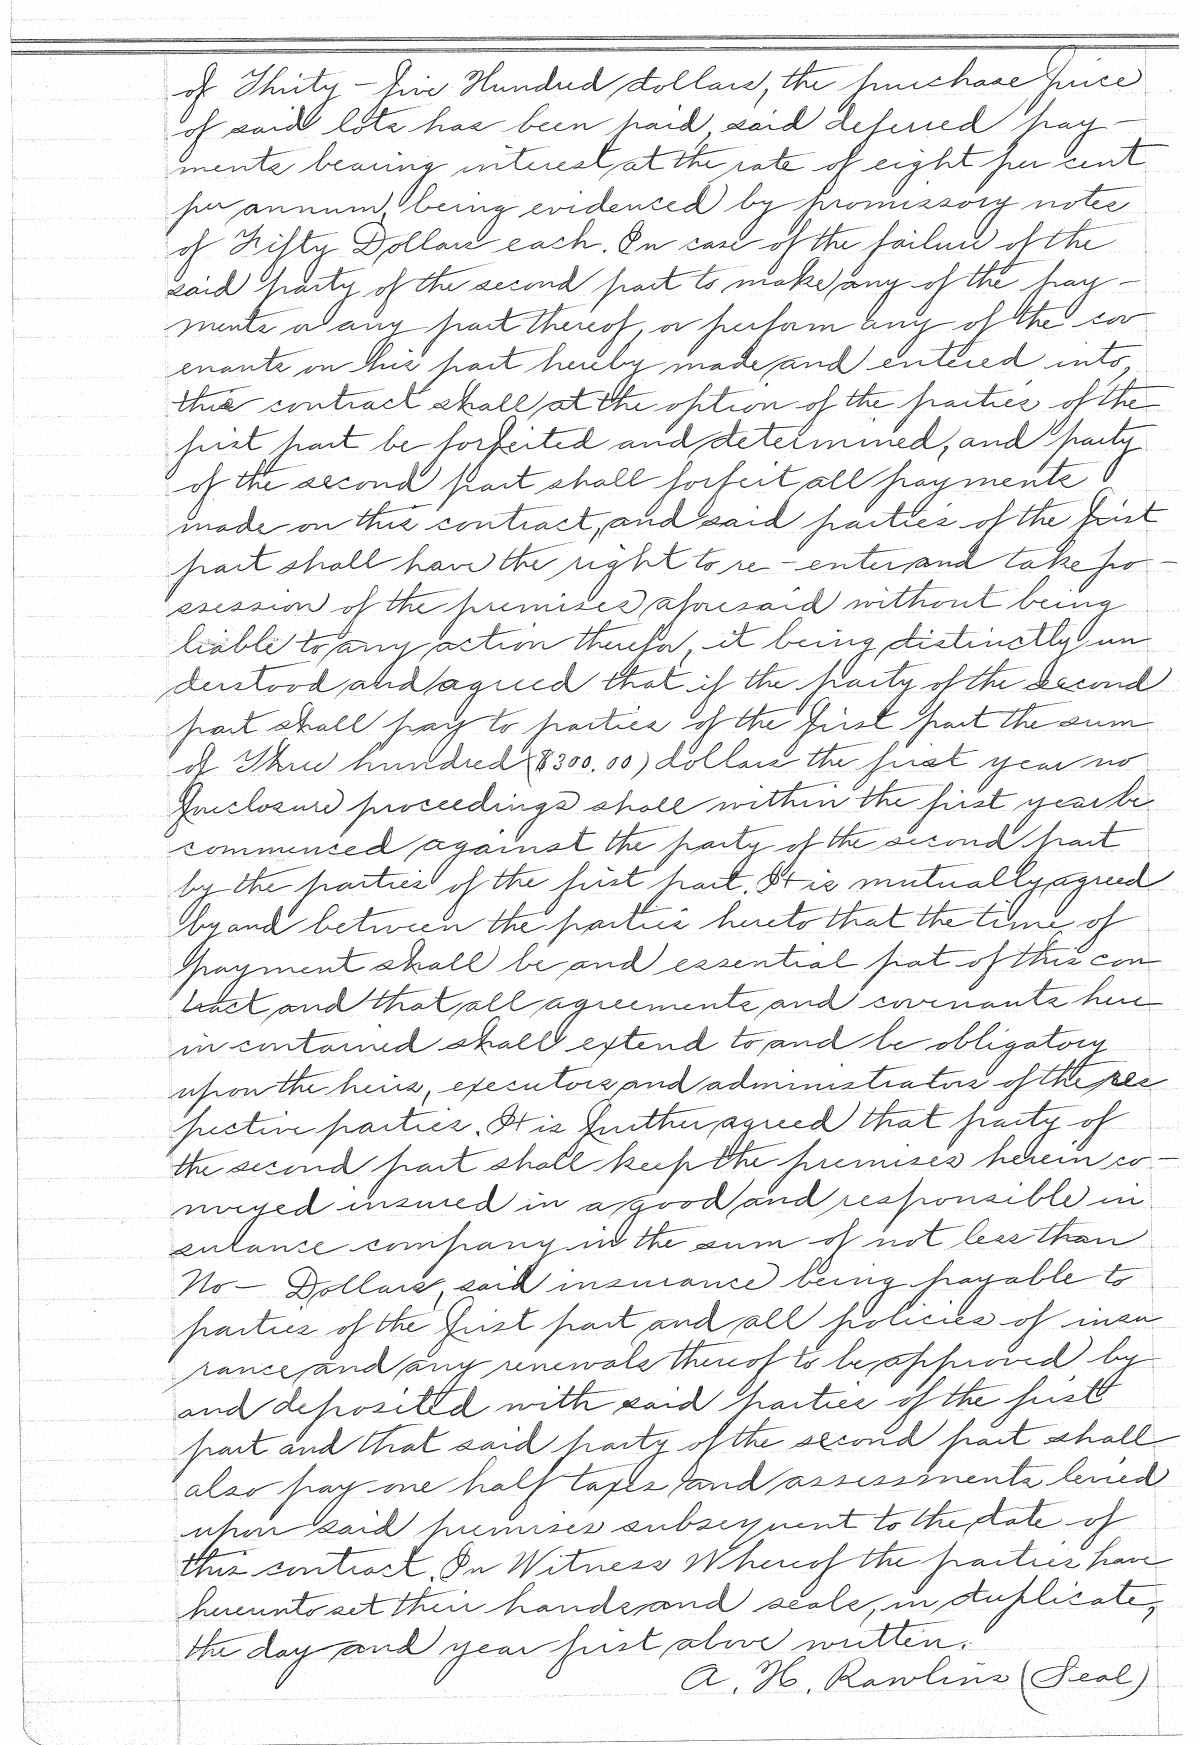 of Thirty-five Hundred dollars, the purchase price
of said lots has been paid, said deferred pay-
ments bearing interest at the rate of eight per cent
per annum, being evidenced by promissory notes
of Fifty Dollars each. In case of the failure of the
said party of the second part to make any of the pay-
ments or any part thereof, or perform any of the cov
enants on his part hereby made and entered into,
this contract shall at the option of the parties of the
first part be forfeited and determined, and party
of the second part shall forfeit all payments
made on this contract, and said parties of the first
part shall have the right to re-enter and take po-
ssession of the premises aforesaid without being
liable to any action therefor, it being distinctly un
derstood and agreed that if the party of the second
part shall pay to parties of the first part the sum
of Three hundred ($300.00) dollars the first year no
foreclosure proceedings shall within the first year be
commenced against the party of the second part
by the parties of the first part. It is mutually agreed
by and between the parties hereto that the time of
payment shall be and essential pat of this con
tract and that all agreements and covenants here
in contained shall extend to and be obligatory
upon the heirs, executors and administrators of the res
pective parties. It is further agreed that party of
the second part shall keep the premises herein co-
nveyed insured in a good and responsible in
surance company in the sum of not less than
No- Dollars, said insurance being payable to
parties of the first part and all policies of insu
rance and any renewals thereof to be approved by
and deposited with said parties of the first
part and that said party of the second part shall
also pay one half taxes and assessments levied
upon said premises subsequent to the date of
this contract. In Witness Whereof the parties have
hereunto set their hands and seals, in duplicate,
the day and year first above written.
A. H. Rawlins (Seal)